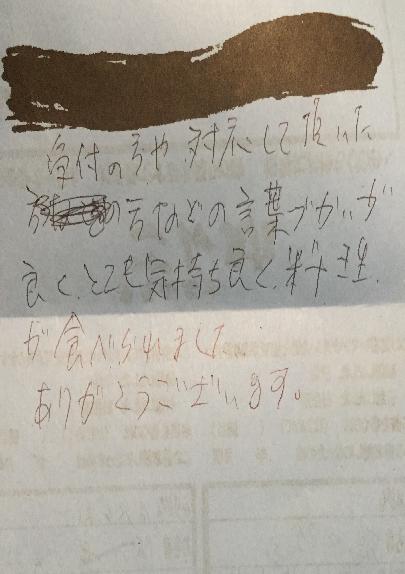 受付の方や対応して頂いた
の方などの言葉づかいが
良く、とても気持ち良く、料理
が食べられまして
ありがとうございます。